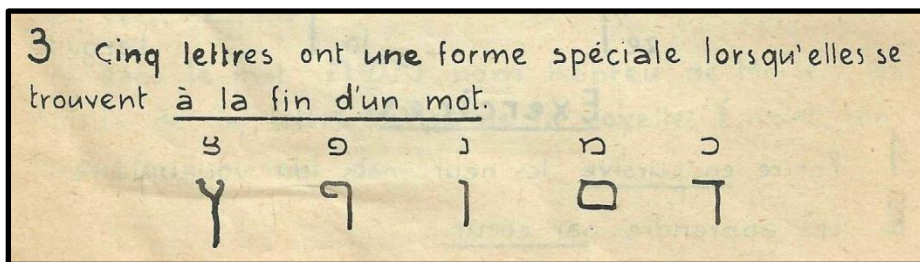 3 Cinq lettres ont une forme spéciale lorsqu'elles se
trouvent à la fin d'un mot.
צ פ נ מ כ
ץ ף ן ם ך